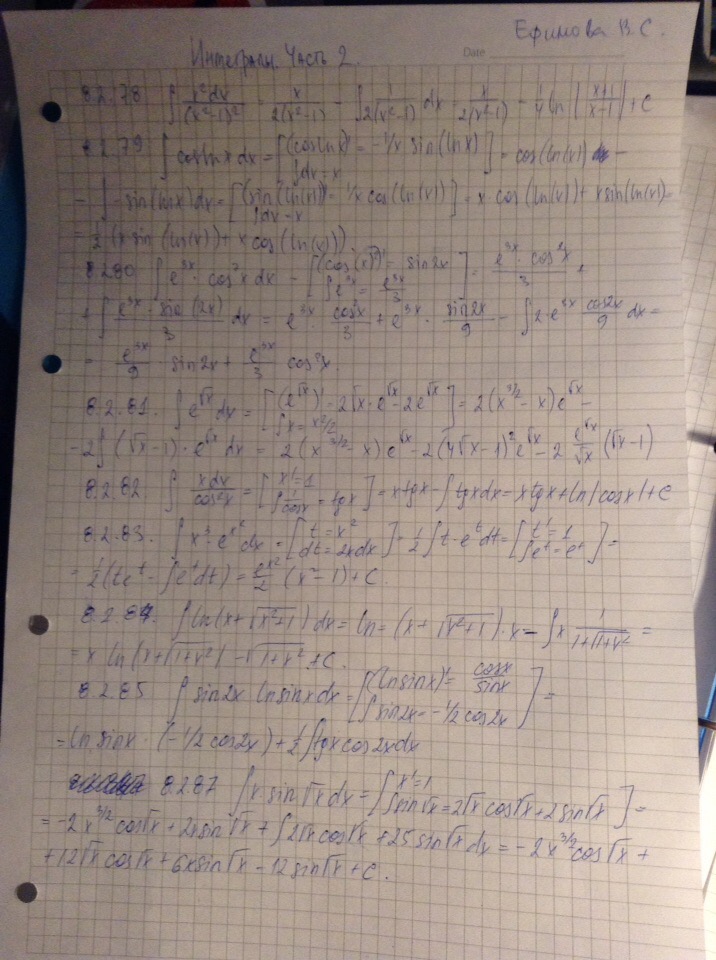 Ефимова В.С.
Интегралы. Часть 2.
Date
8.2.78 ∫ x²dx/(x²-1)² = x/2(x²-1) - ∫ 1/2(x²-1) dx = x/2(x²-1) - 1/4 ln | x+1/x+1 | + C
8.2.79 ∫ cos ln x dx = [(cos ln x)' = -1/x · sin(ln x) ∫dx = x] = cos(ln(x)) -
- ∫ -sin(ln x)dx = [(sin(ln(x))' = 1/x cos(ln(x)) ∫dx = x] = x cos(ln(x)) + x sin(ln(x)) =
= 1/2 (x sin(ln(x)) + x cos(ln(x)))
8.2.80. ∫ e³ˣ · cos²x dx = [(cos(x)²)' = -sin2x ∫e³ˣ = e³ˣ/3] = e³ˣ · cos²x/3 +
+ ∫ e³ˣ · sin(2x)/3 dx = e³ˣ · cos²x/3 + e³ˣ · sin2x/9 - ∫ 2·e³ˣ cos2x/9 dx =
= e³ˣ/9 · sin2x + e³ˣ/3 cos²x.
8.2.81. ∫ e^√x dx = [(e^√x)' = 2√x·e^√x - 2e^√x ∫x = x²/2] = 2(x^3/2 - x)e^√x -
-2∫(√x-1)·e^√x dx = 2(x^3/2 - x)e^√x - 2(4√x-1)²e^√x - 2 e^√x/√x (√x-1)
8.2.82. ∫ xdx/cos²x = [x'=1 ∫1/cos²x = tgx] = x tgx - ∫tgxdx = x tgx + ln|cosx| + C
8.2.83. ∫ x³·e^x² dx = [t = x² dt = 2xdx] = 1/2 ∫t·e^t dt = [t'=1 ∫e^t = e^t] =
= 1/2 (te^t - ∫e^t dt) = e^x²/2 (x²-1) + C.
8.2.84. ∫ ln(x+√x²+1) dx = ln = (x+√x²+1)·x - ∫x 1/1+√1+x² =
= x ln(x+√1+x²) - √1+x² + C.
8.2.85 ∫ sin2x ln sinx dx = [(ln sinx)' = cosx/sinx ∫sin2x = -1/2 cos2x] =
= ln sinx · (-1/2 cos2x) + 1/2 ∫tgx cos2xdx
8.2.87 ∫ x sin√x dx = [x'=1 ∫sin√x = 2√x cos√x + 2sin√x] =
= -2x^3/2 cos√x + 2x sin√x + ∫2√x cos√x + 2S sin√x dx = -2x^3/2 cos√x +
+ 12√x cos√x + 6x sin√x - 12 sin√x + C.